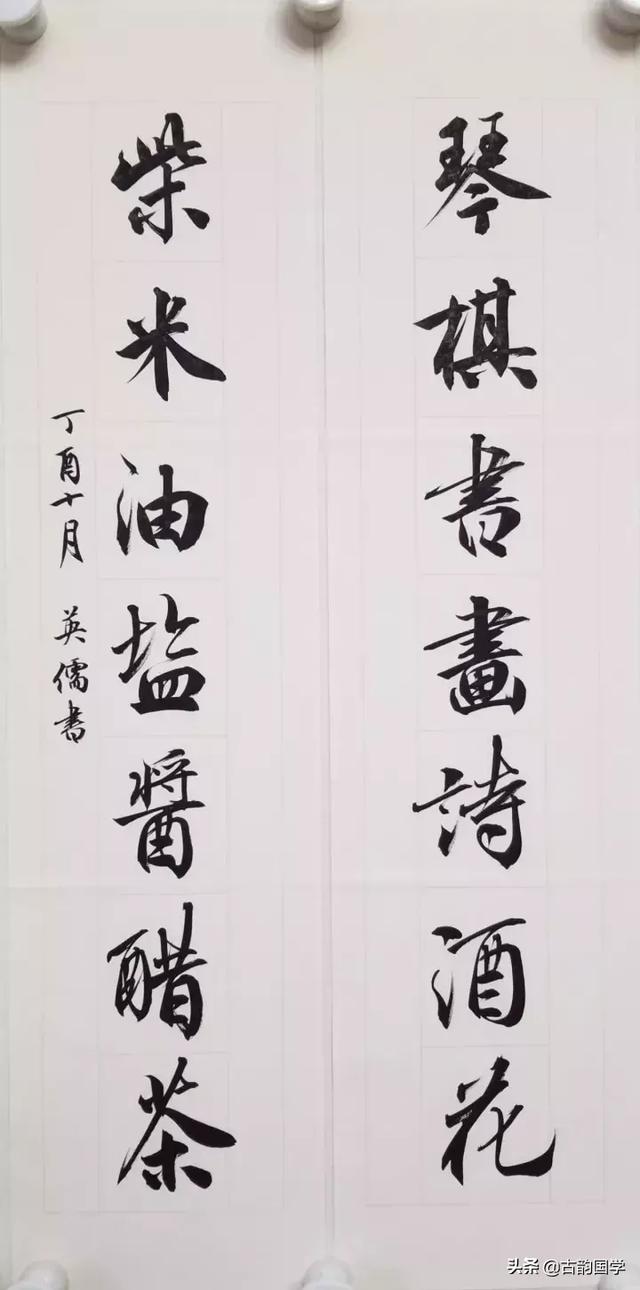 琴棋書畫詩酒花
柴米油塩醬醋茶
丁酉十月 英儒書
头条 @古韵国学